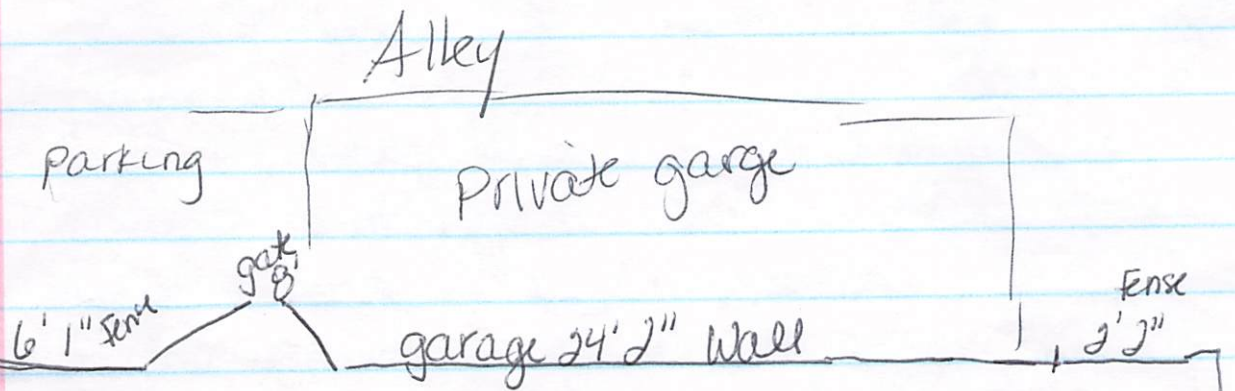 Alley
parking
Private garge
gate
8'
Fense
6' 1" Fense
garage 24' 2" Wall
2' 2"